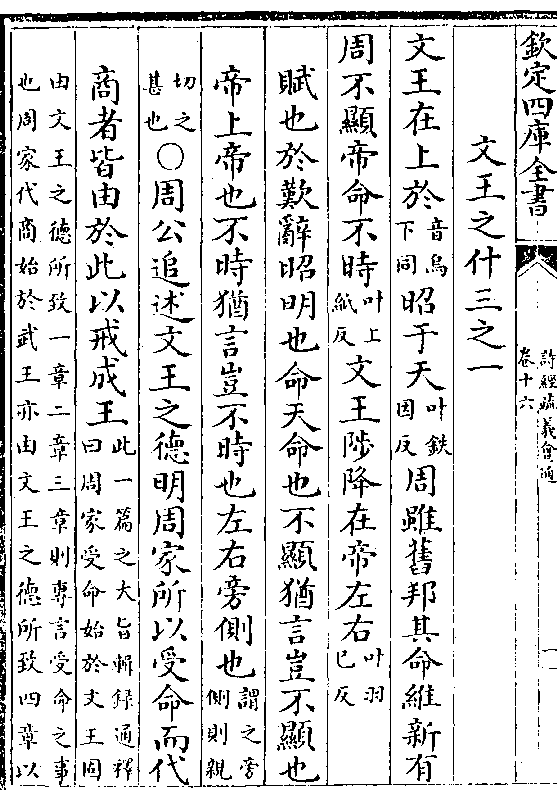 欽定四庫全書
詩經疏義會通
卷十六
一
文王之什三之一
文王在上於音烏下同昭于天叶鉄因反周雖舊邦其命維新有
周不顯帝命不時叶上紙反文王陟降在帝左右叶羽已反
賦也於歎辭昭明也命天命也不顯猶言豈不顯也
帝上帝也不時猶言豈不時也左右旁側也謂之旁側則親
切之甚也○周公追述文王之德明周家所以受命而代
商者皆由於此以戒成王此一篇之大旨輯録通釋曰周家受命始於文王固
由文王之德所致一章二章三章則專言受命之事
也周家代商始於武王亦由文王之德所致四章以